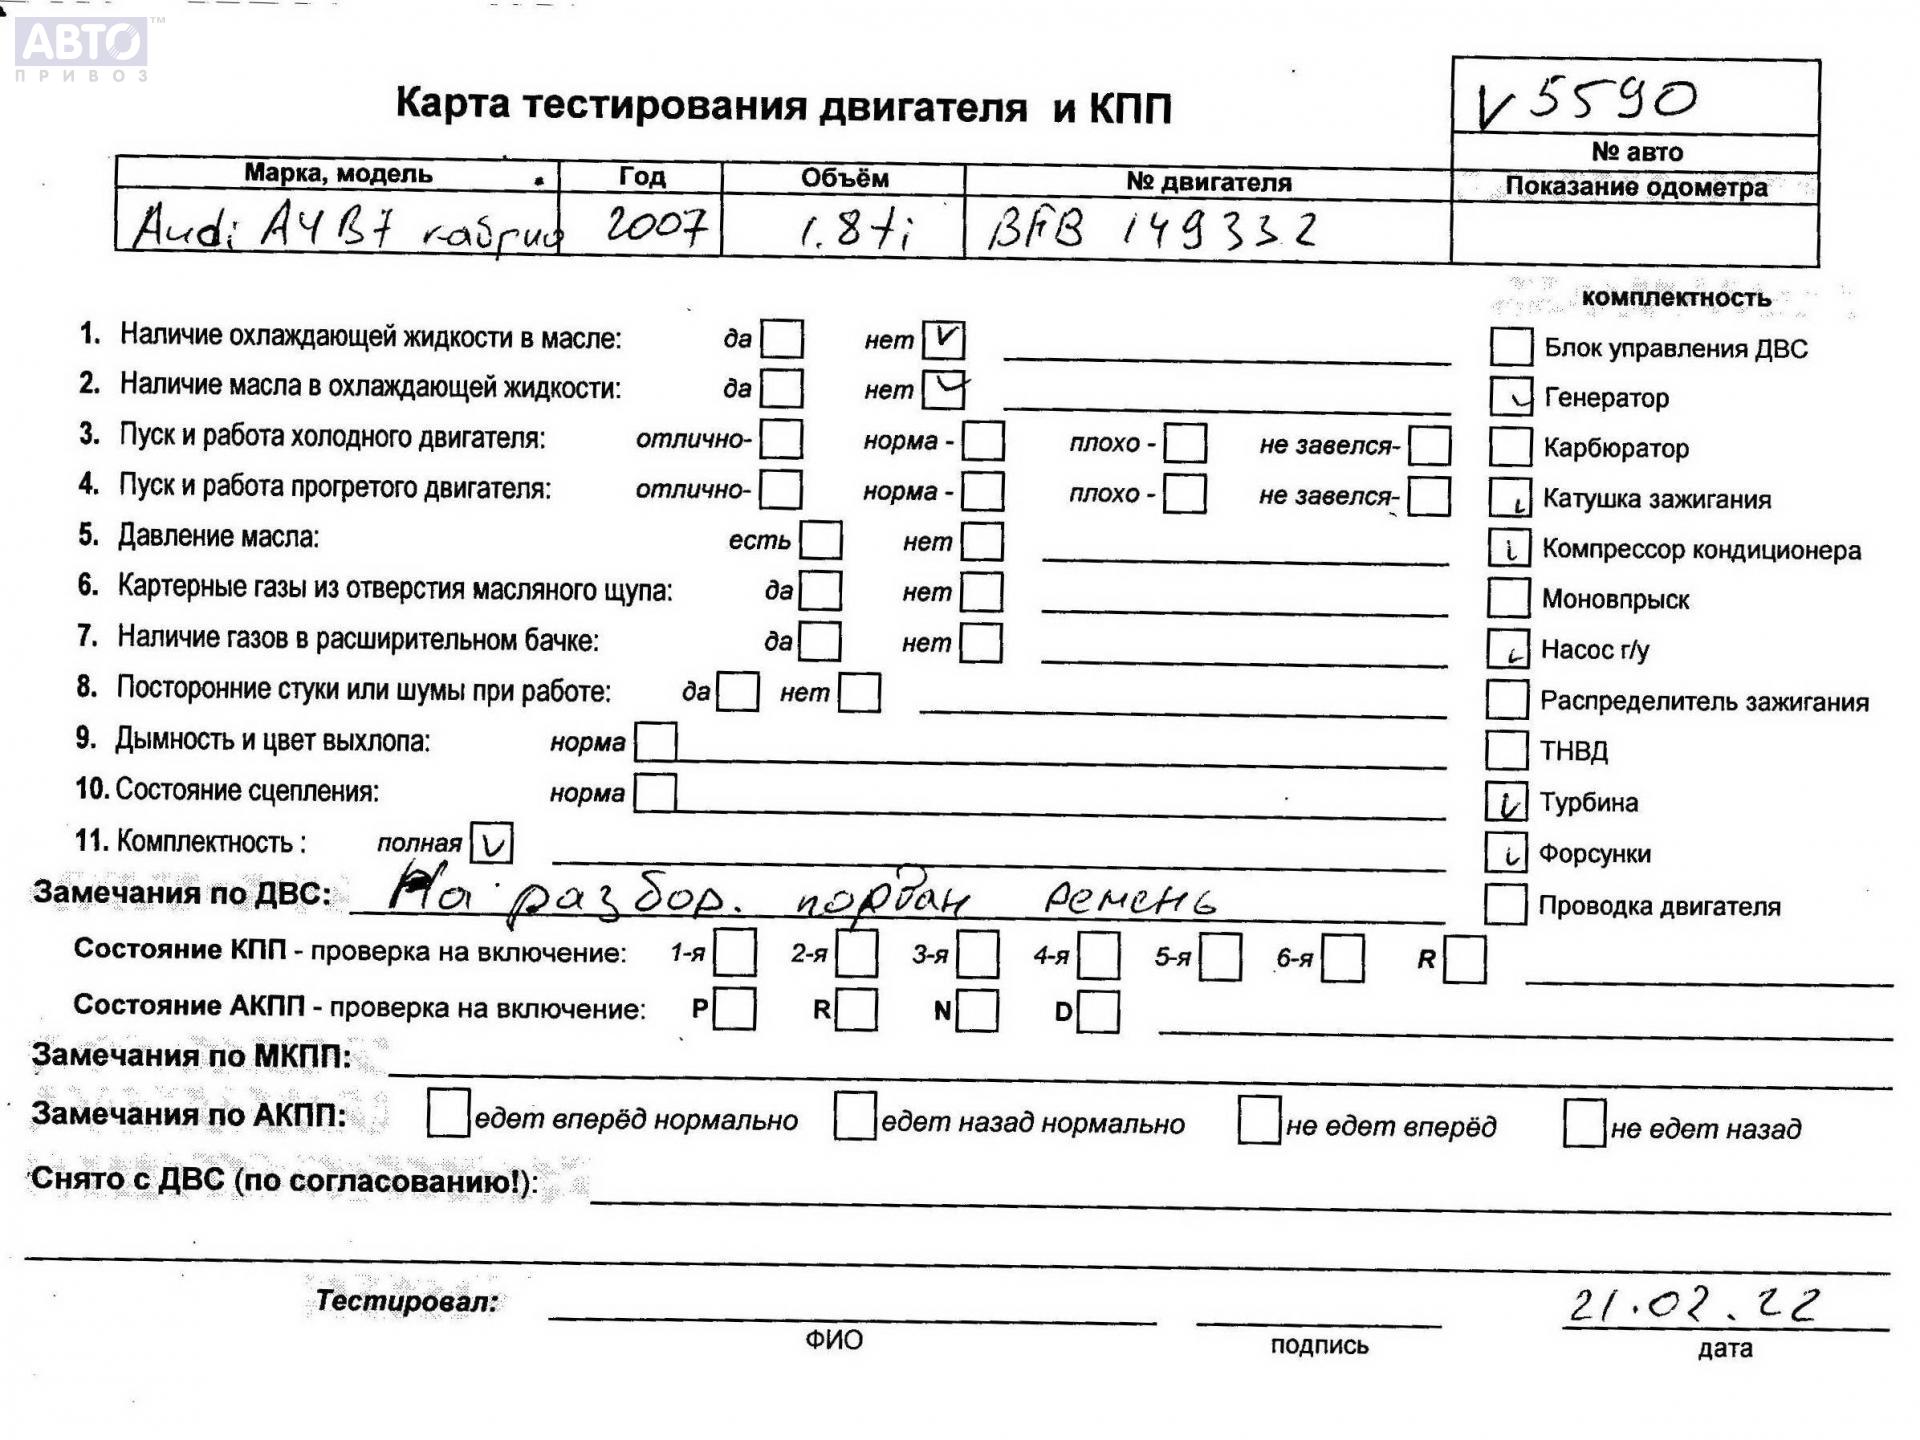 АВТО™
ПРИВОЗ
Карта тестирования двигателя и КПП
V5590
№ авто
Марка, модель Год Объём № двигателя Показание одометра
Audi A4B7 кабрио 2007 1.8ti BFB 149332
комплектность
1. Наличие охлаждающей жидкости в масле: да нет V
Блок управления ДВС
2. Наличие масла в охлаждающей жидкости: да нет V
Генератор
3. Пуск и работа холодного двигателя: отлично- норма - плохо - не завелся-
Карбюратор
4. Пуск и работа прогретого двигателя: отлично- норма - плохо - не завелся-
Катушка зажигания
5. Давление масла: есть нет
Компрессор кондиционера
6. Картерные газы из отверстия масляного щупа: да нет
Моновпрыск
7. Наличие газов в расширительном бачке: да нет
Насос г/у
8. Посторонние стуки или шумы при работе: да нет
Распределитель зажигания
9. Дымность и цвет выхлопа: норма
ТНВД
10. Состояние сцепления: норма
Турбина
11. Комплектность : полная V
Форсунки
Замечания по ДВС: На разбор. порван ремень
Проводка двигателя
Состояние КПП - проверка на включение: 1-я 2-я 3-я 4-я 5-я 6-я R
Состояние АКПП - проверка на включение: P R N D
Замечания по МКПП:
Замечания по АКПП: едет вперёд нормально едет назад нормально не едет вперёд не едет назад
Снято с ДВС (по согласованию!):
Тестировал: 21.02.22
ФИО подпись дата